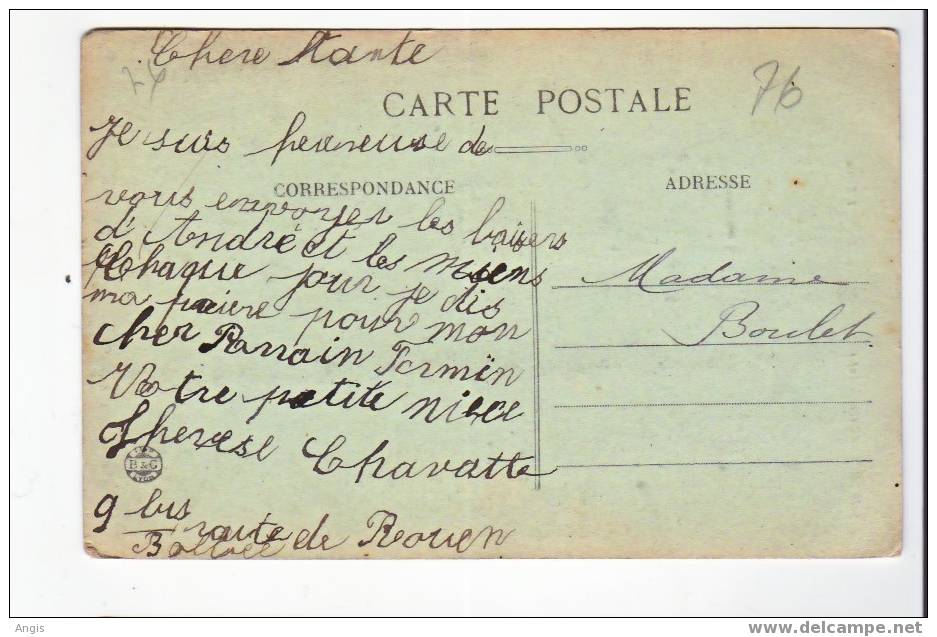 Chere Tante
76
CARTE POSTALE
Je suis heureuse de
CORRESPONDANCE
ADRESSE
vous envoyer les baisers
d'André et les miens
Chaque jour je dis
ma prière pour mon
cher Parrain Farmïn
Votre petite niece
Therese Chavatte
B & G
LYON
9 bis route de Rouen
Madame
Boulet
Angis
http://www.delcampe.net